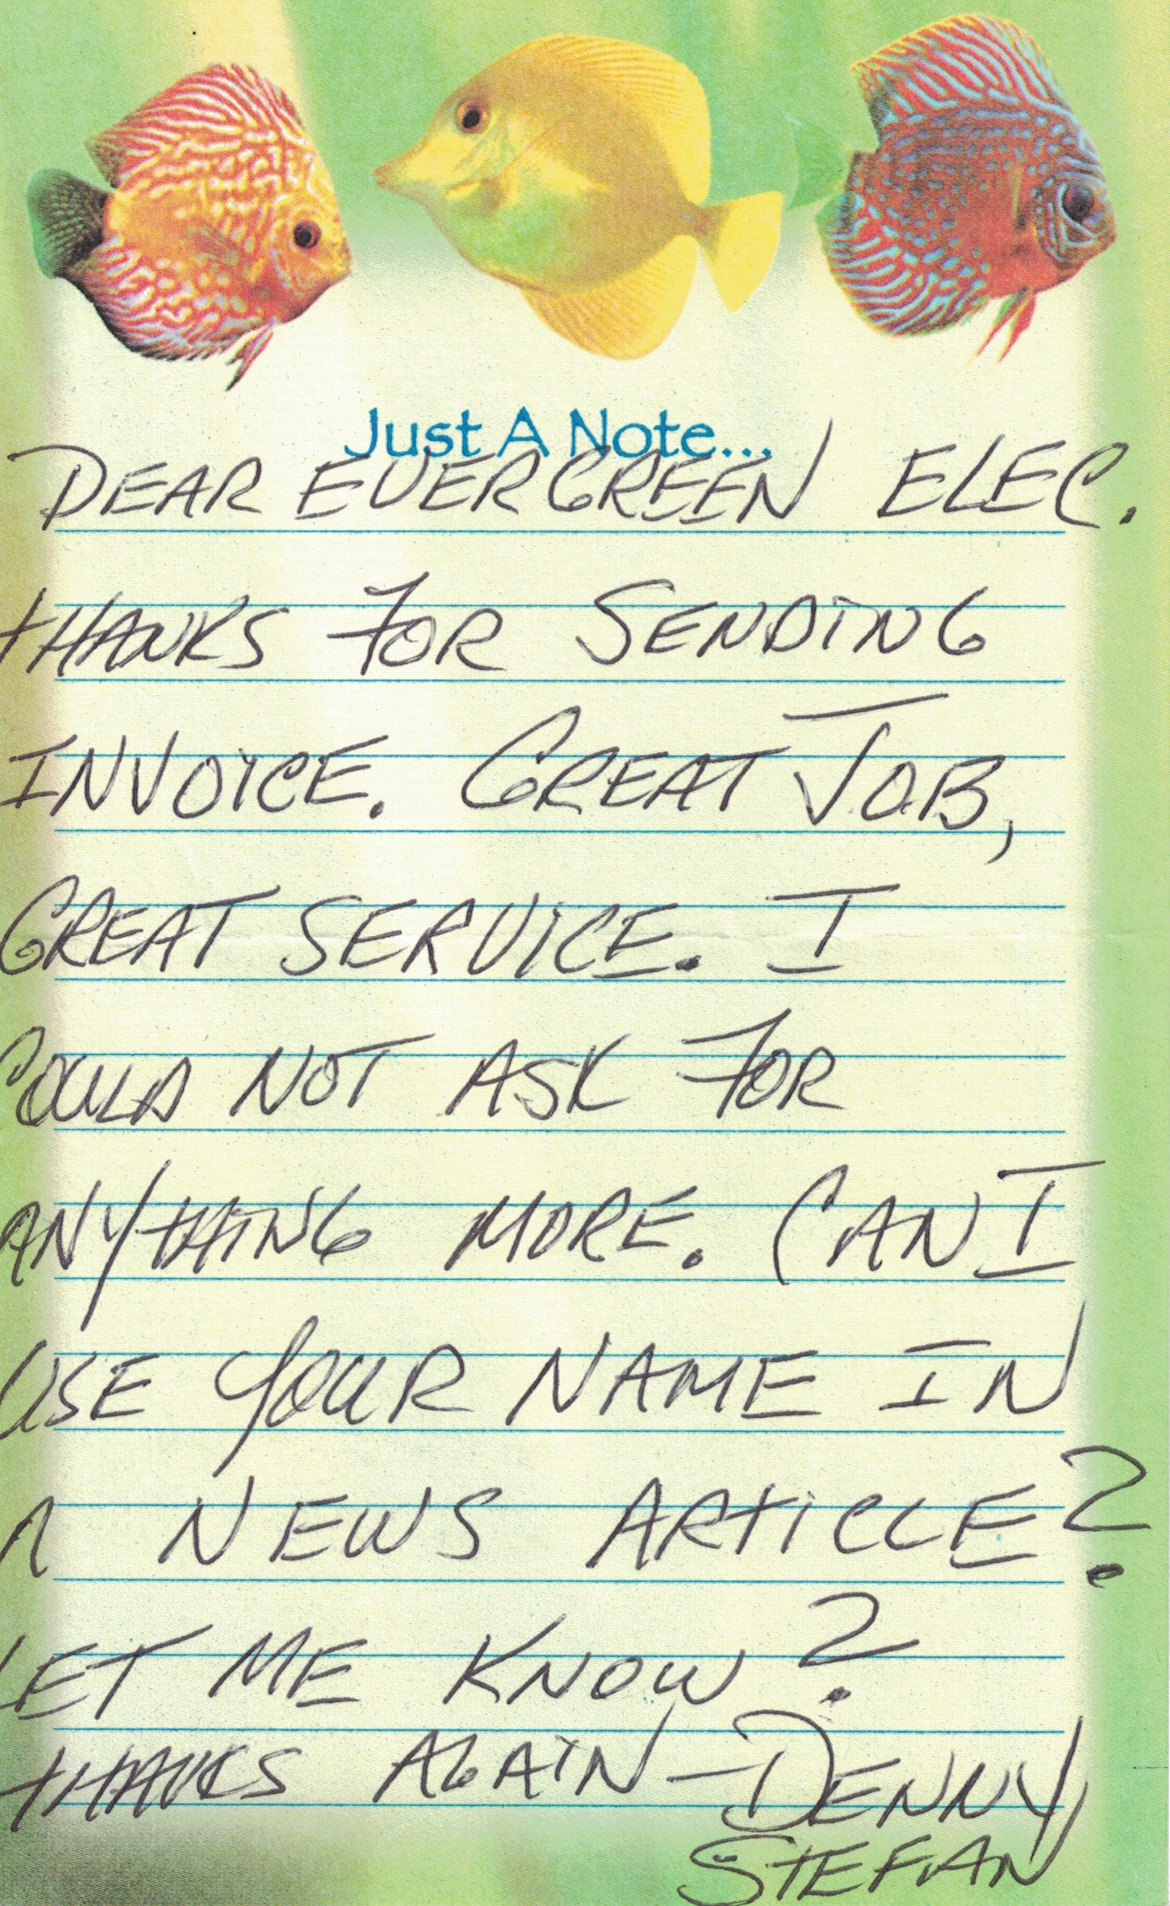 Just A Note...
DEAR EVERGREEN ELEC.
THANKS FOR SENDING
INVOICE. GREAT JOB,
GREAT SERVICE. I
COULD NOT ASK FOR
ANYTHING MORE. CAN I
USE YOUR NAME IN
A NEWS ARTICLE?
LET ME KNOW?
THANKS AGAIN - DENNY
STEFAN